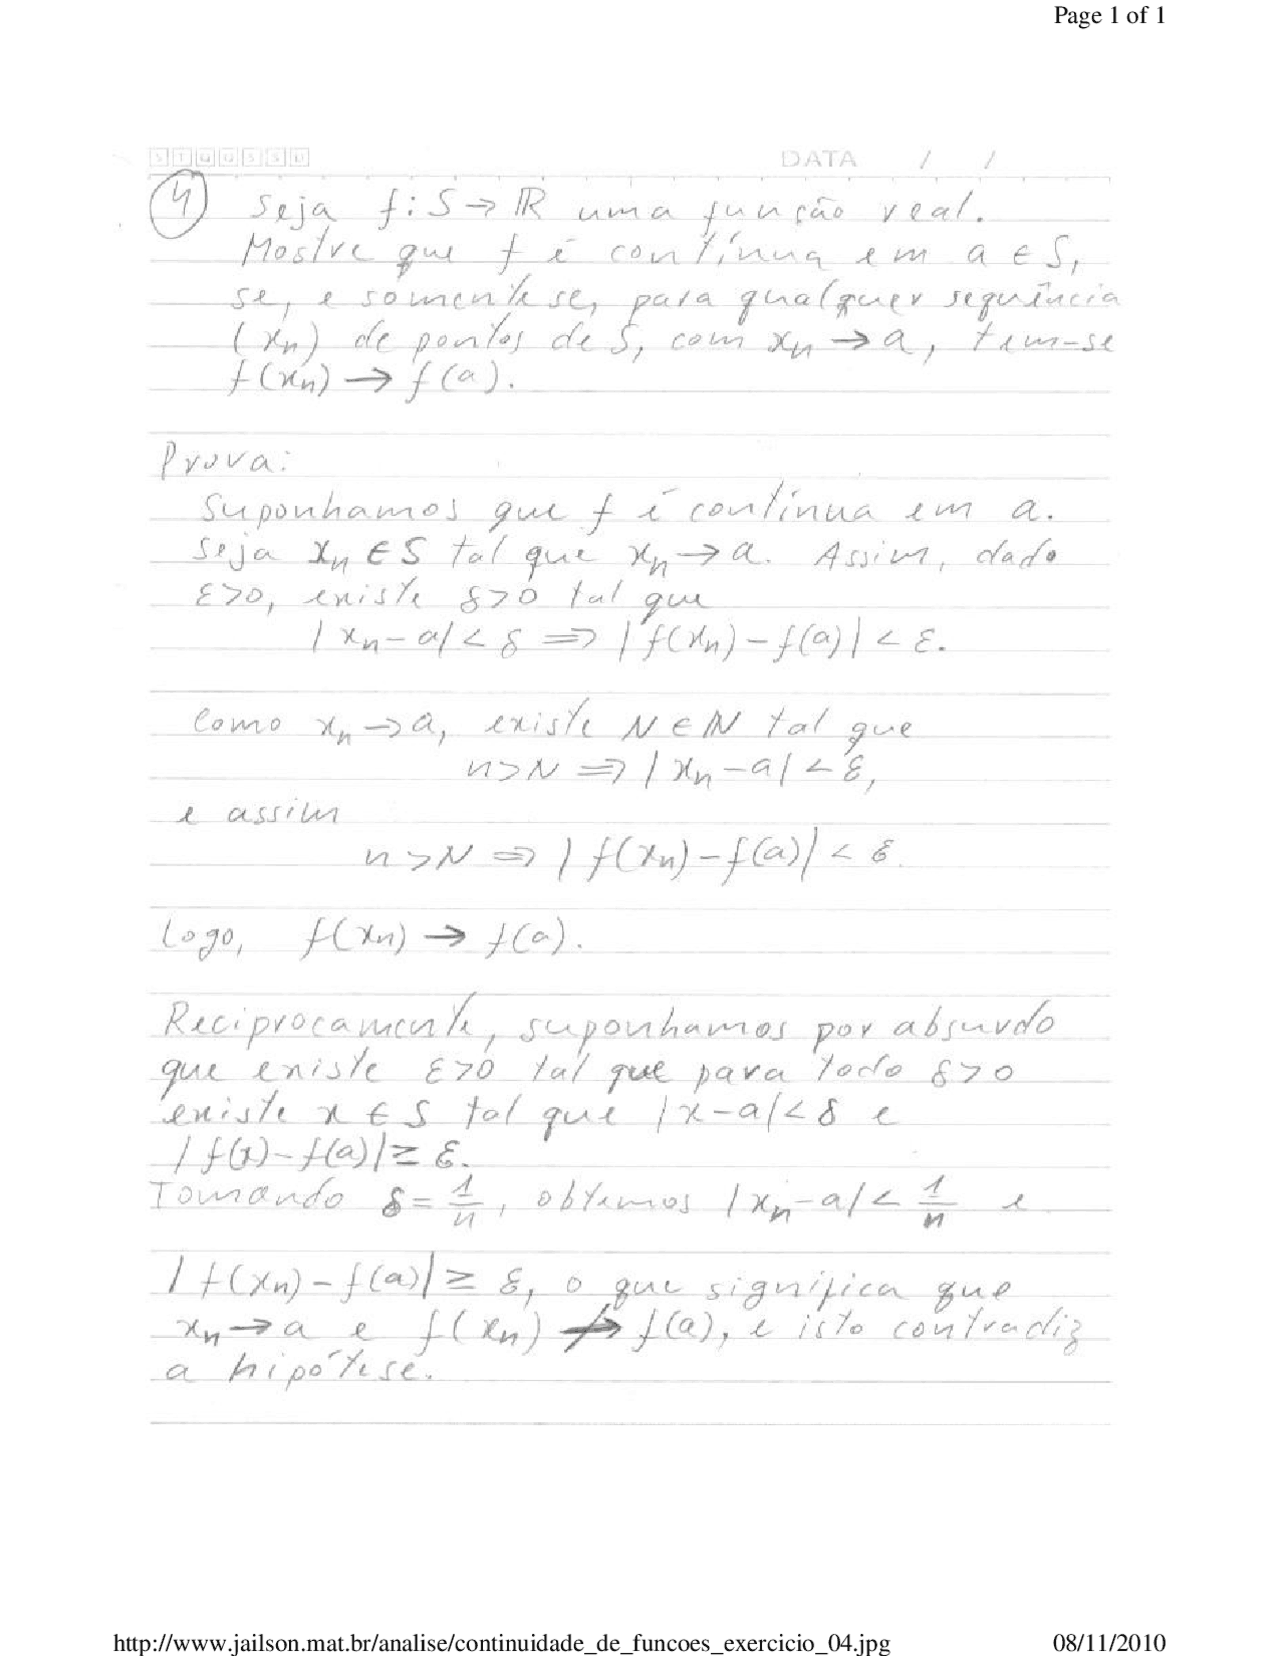 Page 1 of 1
S T Q Q S S D DATA / /
4 Seja f: S → ℝ uma função real.
Mostre que f é contínua em a ∈ S,
se, e somente se, para qualquer sequência
(xₙ) de pontos de S, com xₙ → a, tem-se
f(xₙ) → f(a).
Prova:
Suponhamos que f é contínua em a.
Seja xₙ ∈ S tal que xₙ → a. Assim, dado
ε>0, existe δ>0 tal que
|xₙ - a| < δ ⇒ |f(xₙ) - f(a)| < ε.
Como xₙ → a, existe N ∈ ℕ tal que
n > N ⇒ |xₙ - a| < ε,
e assim
n > N ⇒ |f(xₙ) - f(a)| < ε.
Logo, f(xₙ) → f(a).
Reciprocamente, suponhamos por absurdo
que existe ε>0 tal que para todo δ>0
existe x ∈ S tal que |x - a| < δ e
|f(x) - f(a)| ≥ ε.
Tomando δ = 1/n, obtemos |xₙ - a| < 1/n e
|f(xₙ) - f(a)| ≥ ε, o que significa que
xₙ → a e f(xₙ) ↛ f(a), e isto contradiz
a hipótese.
http://www.jailson.mat.br/analise/continuidade_de_funcoes_exercicio_04.jpg 08/11/2010